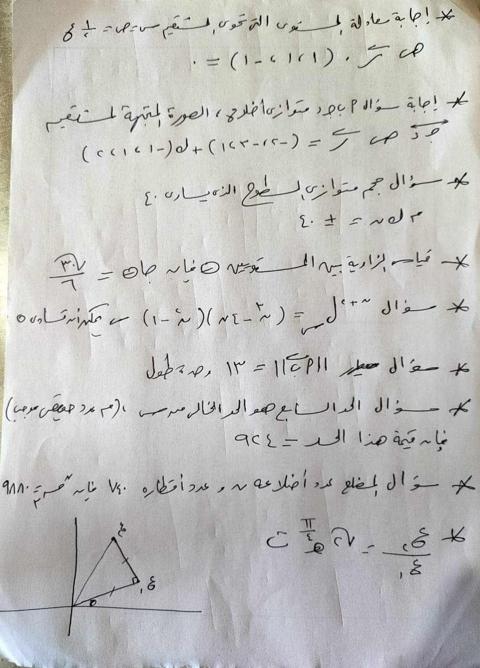 * إجابة معادلة المستوى الذى يحوى المستقيم س = ص = ½ ع
ر . (١ ، ١ ، -١) = ٠
* إجابة سؤال ٢ ب ج د متوازى أضلاع ، الصورة المتجهة للمستقيم
ج د ر = (-٢ ، -٣ ، ١) + ك (-١ ، ١ ، ٢)
* سؤال حجم متوازى السطوح الذى يساوى ٤٠
م ك ن = ± ٤٠
* قياس الزاوية بين المستويين θ فإن جا θ = √٣٠ / ٦
* سؤال ن+٢ل = (ن² - ٤ن)(ن² - ١) س يمكن أن تساوى ٥
* سؤال ||٢ب|| = ١٣ وحدة طول
* سؤال الحد السابع هو الحد الخالى من س ، (م عدد حقيقى موجب)
فإن قيمة هذا الحد = ٩٢٤
* سؤال المضلع عدد أضلاعه ن و عدد أقطاره ٧٤٠ فإن = ٩٨٨٠
* ع₂ / ع₁ = √٢ هـ^(π/٤ ت)
ع₂
ع₁
θ